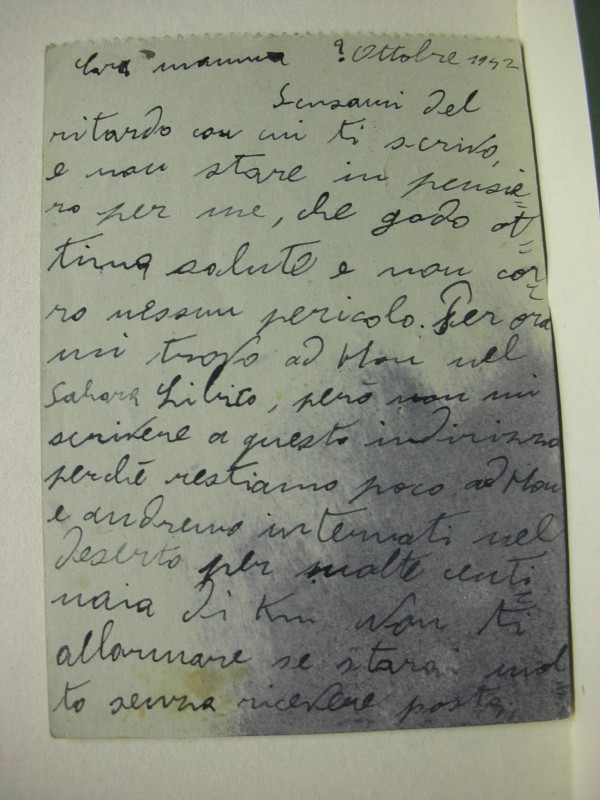 Cara mamma 9 Ottobre 1942
Scusami del
ritardo con cui ti scrivo,
e non stare in pensie=
ro per me, che godo ot=
tima salute e non cor=
ro nessun pericolo. Per ora
mi trovo ad Hon nel
Sahara Libico, però non mi
scrivere a questo indirizzo
perché restiamo poco ad Hon
e andremo internati nel
deserto per molte centi=
naia di Km Non ti
allarmare se starai mol=
to senza ricevere posta,